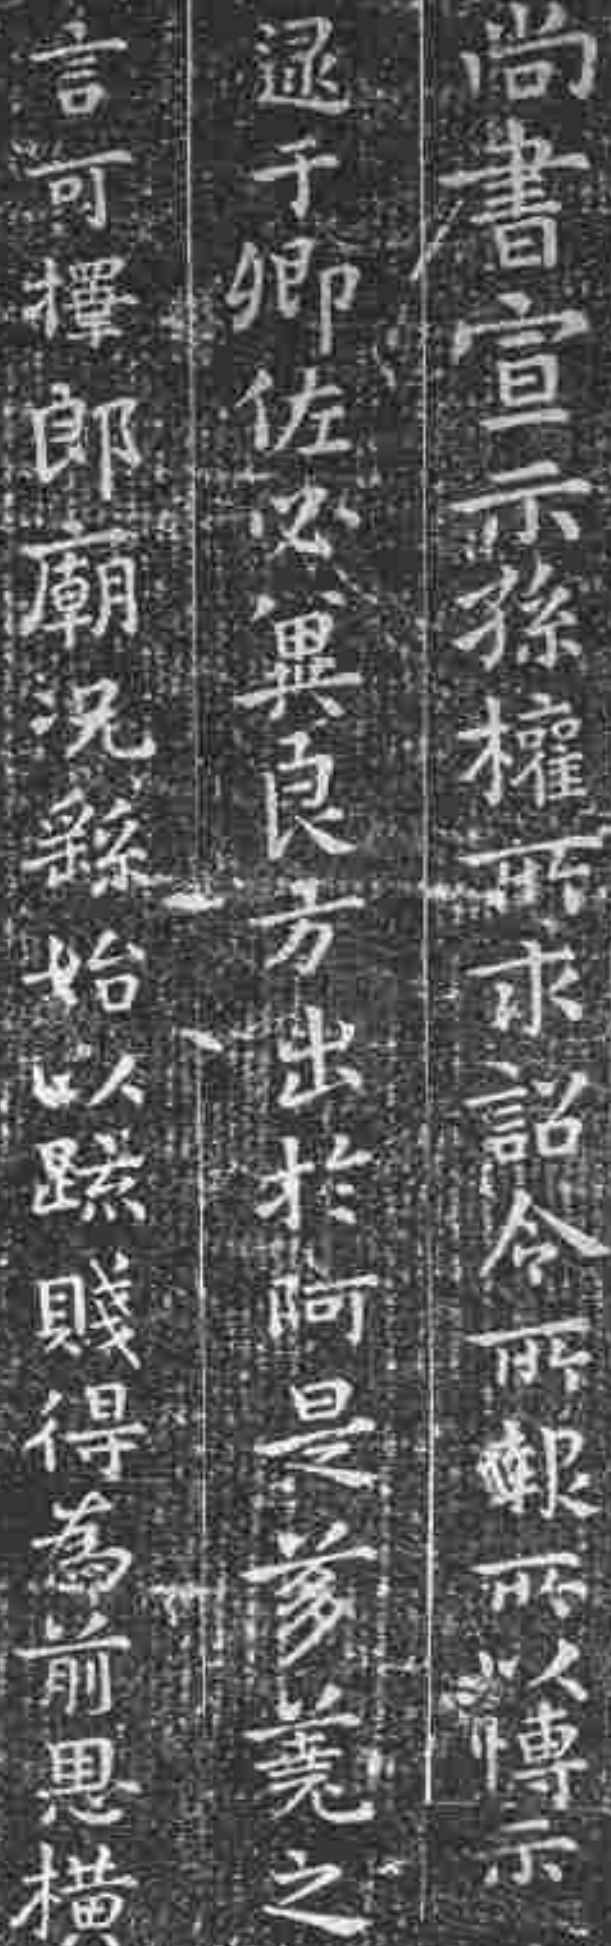 尚書宣示孫權所求詔令所報所以博示
逯于卿佐必冀良方出於阿是蒭蕘之
言可擇郎廟況繇始以疏賤得為前恩橫